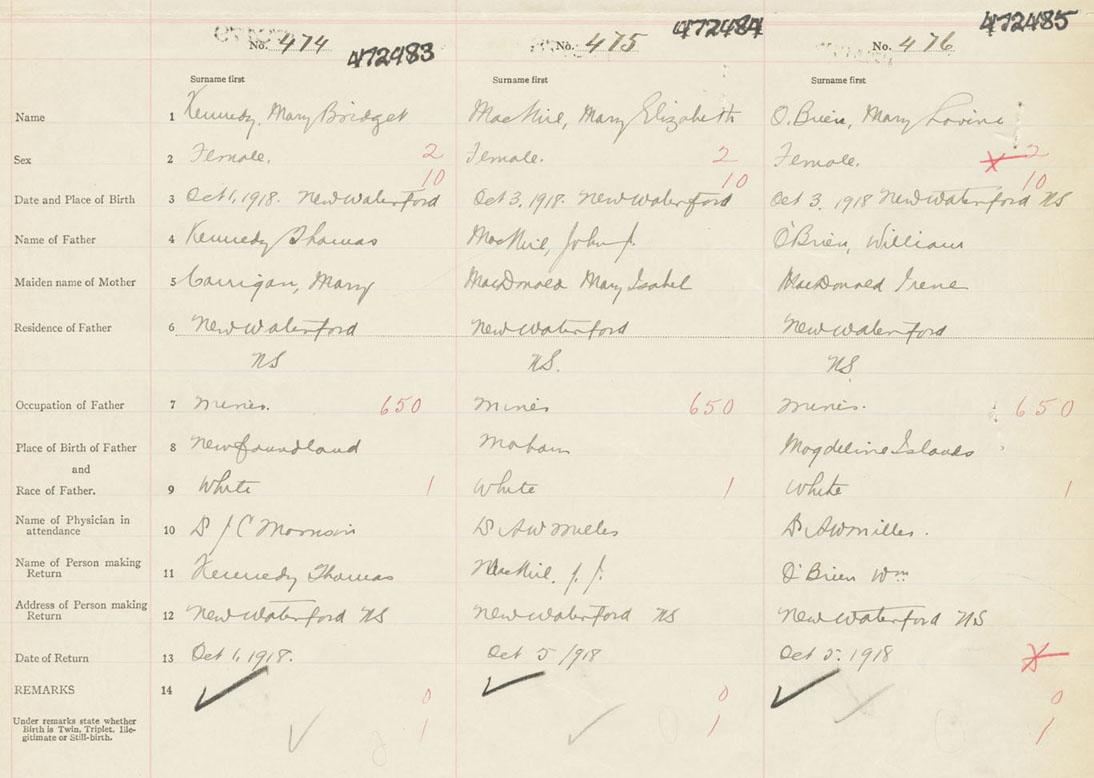 No. 474 472483 No. 475 472484 No. 476 472485
Surname first Surname first Surname first
Name 1 Kennedy, Mary Bridget MacNeil, Mary Elizabeth O.Brien, Mary
Sex 2 Female. 2 Female. 2 Female. 2
10 10 10
Date and Place of Birth 3 Oct 1, 1918. New Waterford Oct 3, 1918. New Waterford Oct 3, 1918 New Waterford NS
Name of Father 4 Kennedy Thomas MacNeil, John J. O'Brien, William
Maiden name of Mother 5 Carrigan, Mary MacDonald Mary Isabel MacDonald Irene
Residence of Father 6 New Waterford New Waterford New Waterford
NS NS. NS.
Occupation of Father 7 650 650 650
Place of Birth of Father 8 Newfoundland Magdeline Islands
and
Race of Father. 9 White 1 White 1 White 1
Name of Physician in
attendance 10 Dr J C Morrison Dr A W Dr A W
Name of Person making
Return 11 Kennedy Thomas MacNeil, J. J. O'Brien Wm
Address of Person making
Return 12 New Waterford NS New Waterford NS New Waterford NS
Date of Return 13 Oct 1, 1918. Oct 5 1918 Oct 5. 1918
REMARKS 14 0 0 0
Under remarks state whether
Birth is Twin, Triplet, Ille-
gitimate or Still-birth. 1 1 1